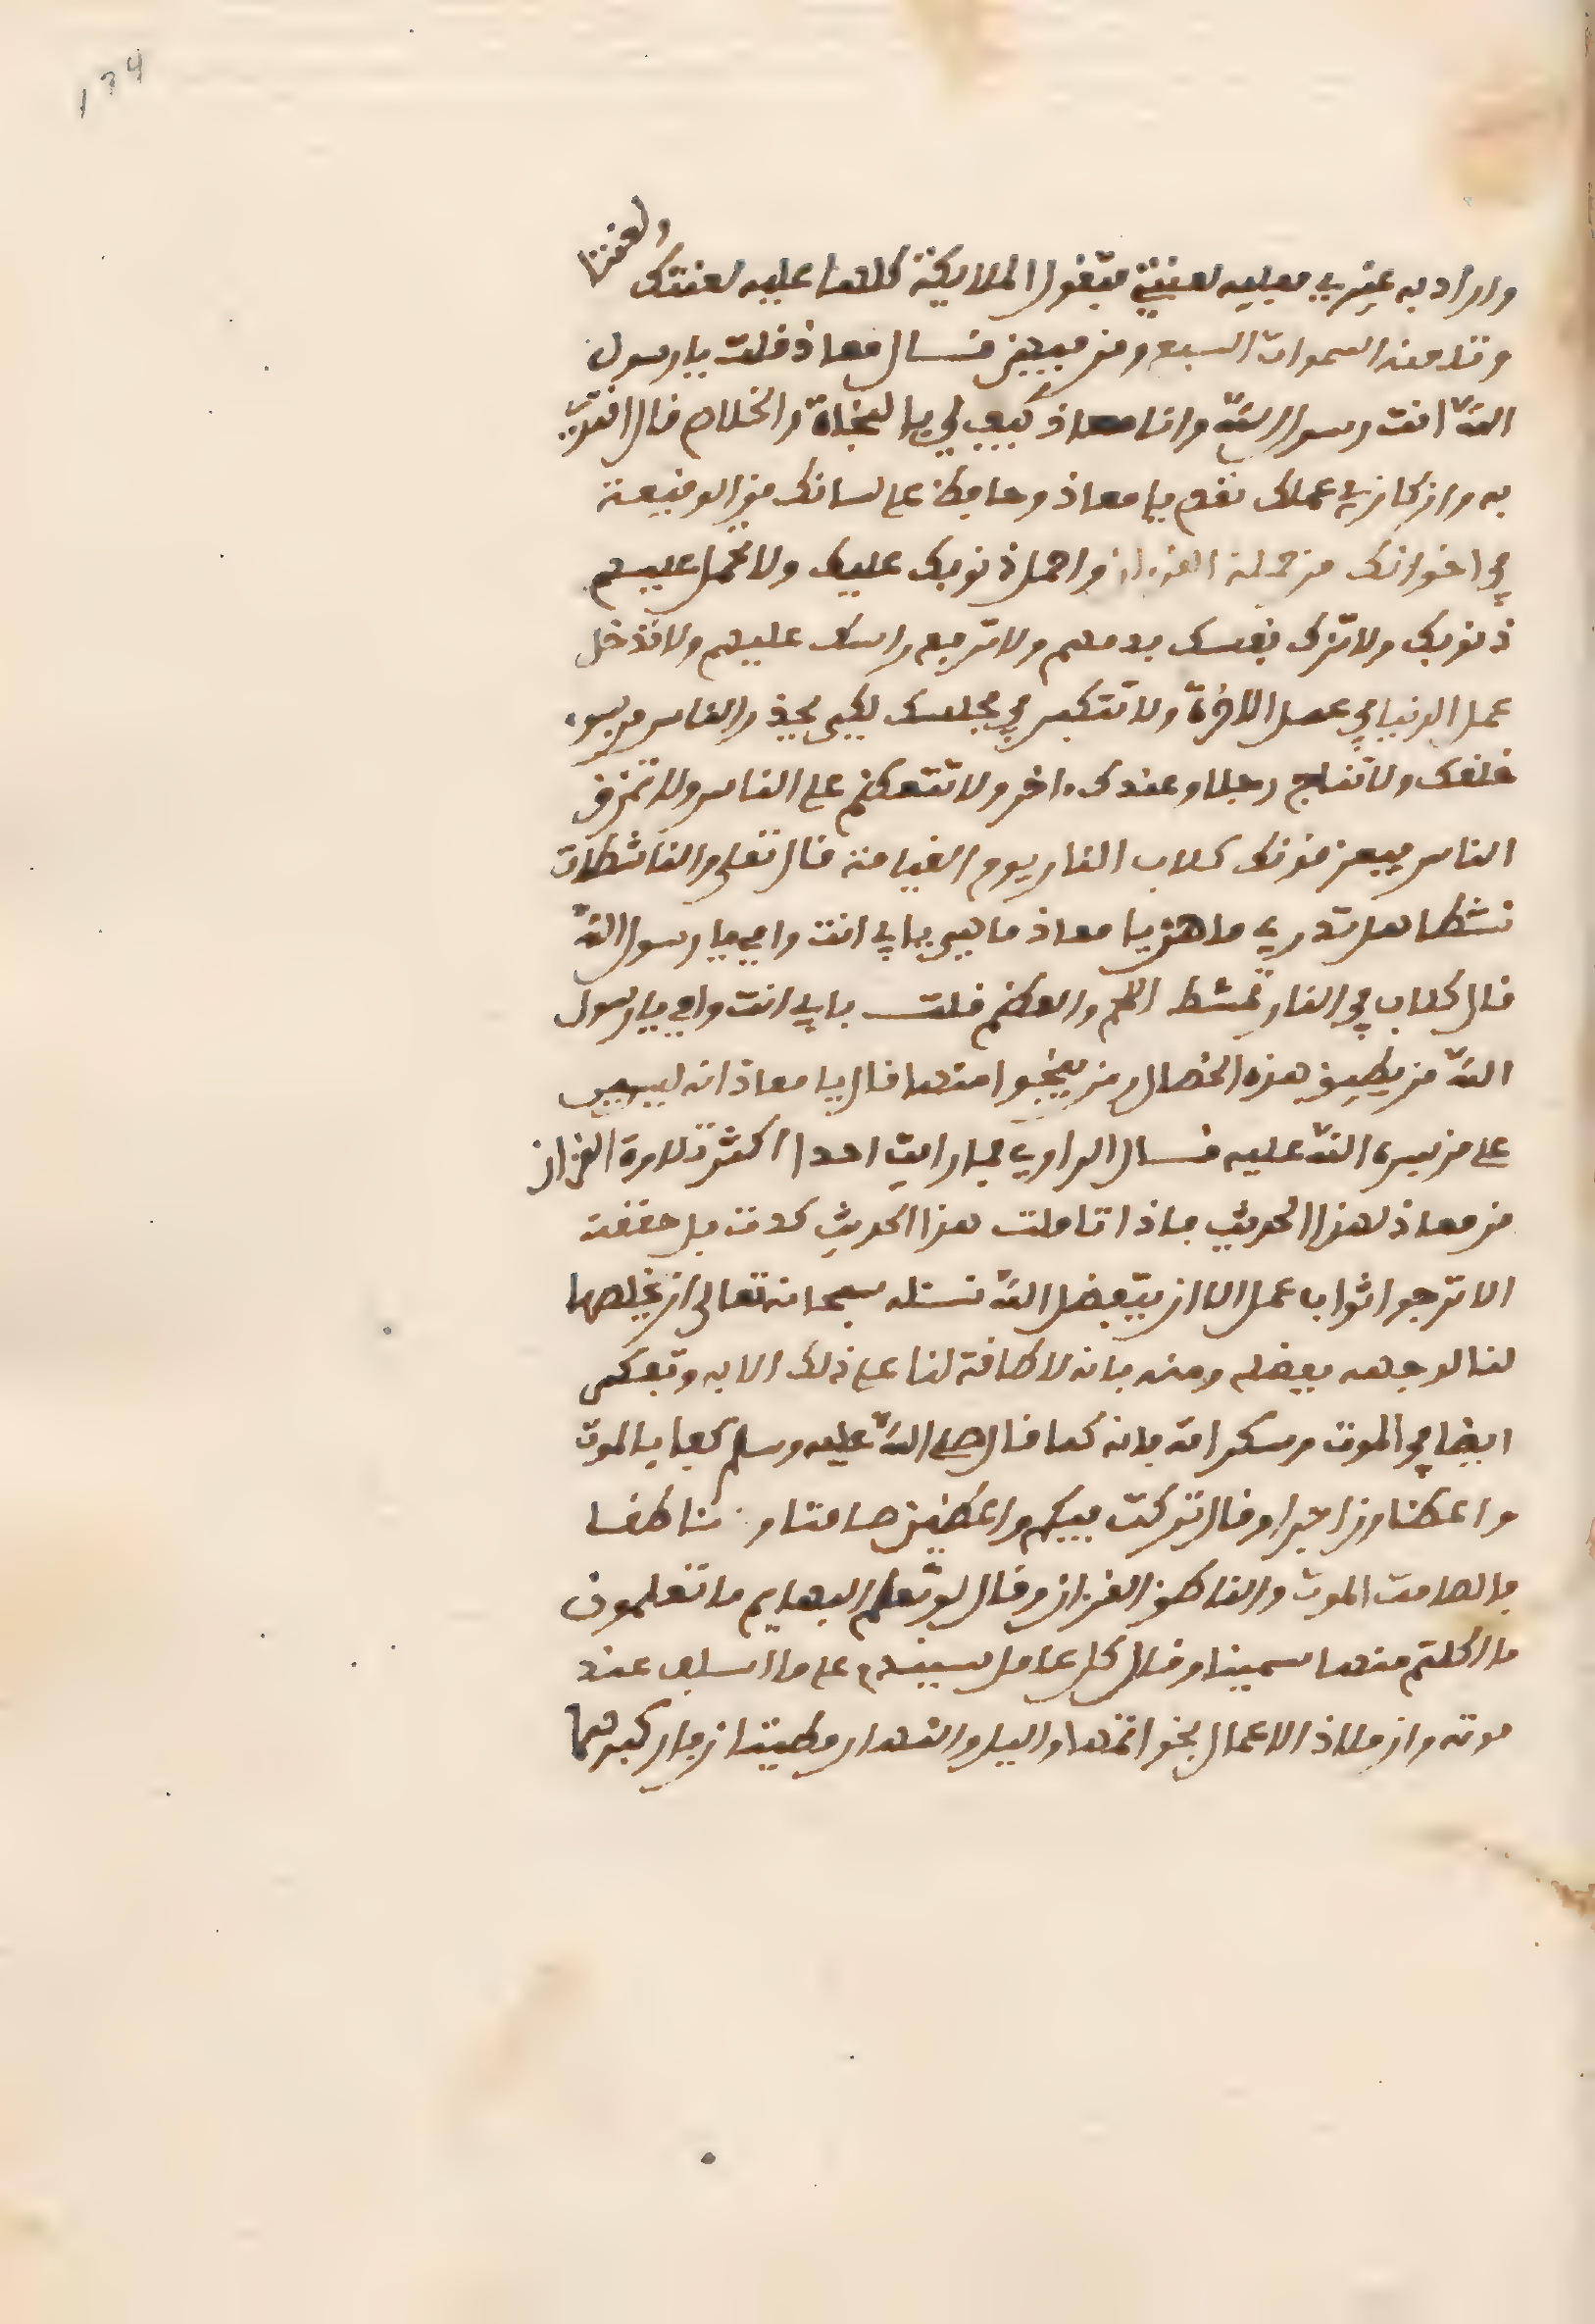 134
واراد به غيري فعليه لعنتي فتقول الملايكة كلها عليه لعنتك ولعنتنا
وتلعنه السموات السبع ومن فيهن قال معاذ قلت يا رسول
الله انت رسول الله وانا معاذ كيف لي بالنجاة والخلاص قال اقتد
به وان كان في عملك نقص يا معاذ وحافظ على لسانك من الوقيعة
في اخوانك من حملة القرءان واحمل ذنوبك عليك ولا تحمل عليهم
ذنوبك ولا تزك نفسك بذمهم ولا ترفع راسك عليهم ولا تدخل
عمل الدنيا في عمل الاخرة ولا تتكبر في مجلسك لكي يحذر الناس من سوء
خلقك ولا تناج رجلا وعندك ءاخر ولا تتعظم على الناس ولا تمزق
الناس فيمزقونك كلاب النار يوم القيامة قال تعلى والناشطات
نشطا هل تدري ما هن يا معاذ ما هي بابي انت وامي يا رسول الله
قال كلاب في النار تمشط اللحم والعظم قلت بابي انت وامي يا رسول
الله من يطيق هذه الخصال ومن ينجوا منها قال يا معاذ انه ليسير
على من يسره الله عليه قال الراوي فما رايت احدا اكثر تلاوة القرءان
من معاذ لهذا الحديث فاذا تاملت هذا الحديث كدت بل حققت
الا ترجوا ثواب عمل الا ان يتفضل الله نسئله سبحانه تعالى ان يخلصها
لنا لوجهه بفضله ومنه فانه لا طاقة لنا على ذلك الا به وتفكر
ايضا في الموت وسكراته فانه كما قال صلى الله عليه وسلم كفا بالموت
واعظا وزاجرا وقال تركت فيكم واعظين صامتا و ناطقا
فالصامت الموت والناطق القرءان وقال لو تعلم البهايم ما تعلمون
ما اكلتم منها سمينا وقال كل عامل سيندم على ما اسلف عند
موته وان ملاذ الاعمال بخواتمها واليل والنهار مطيتان فاركبوهما